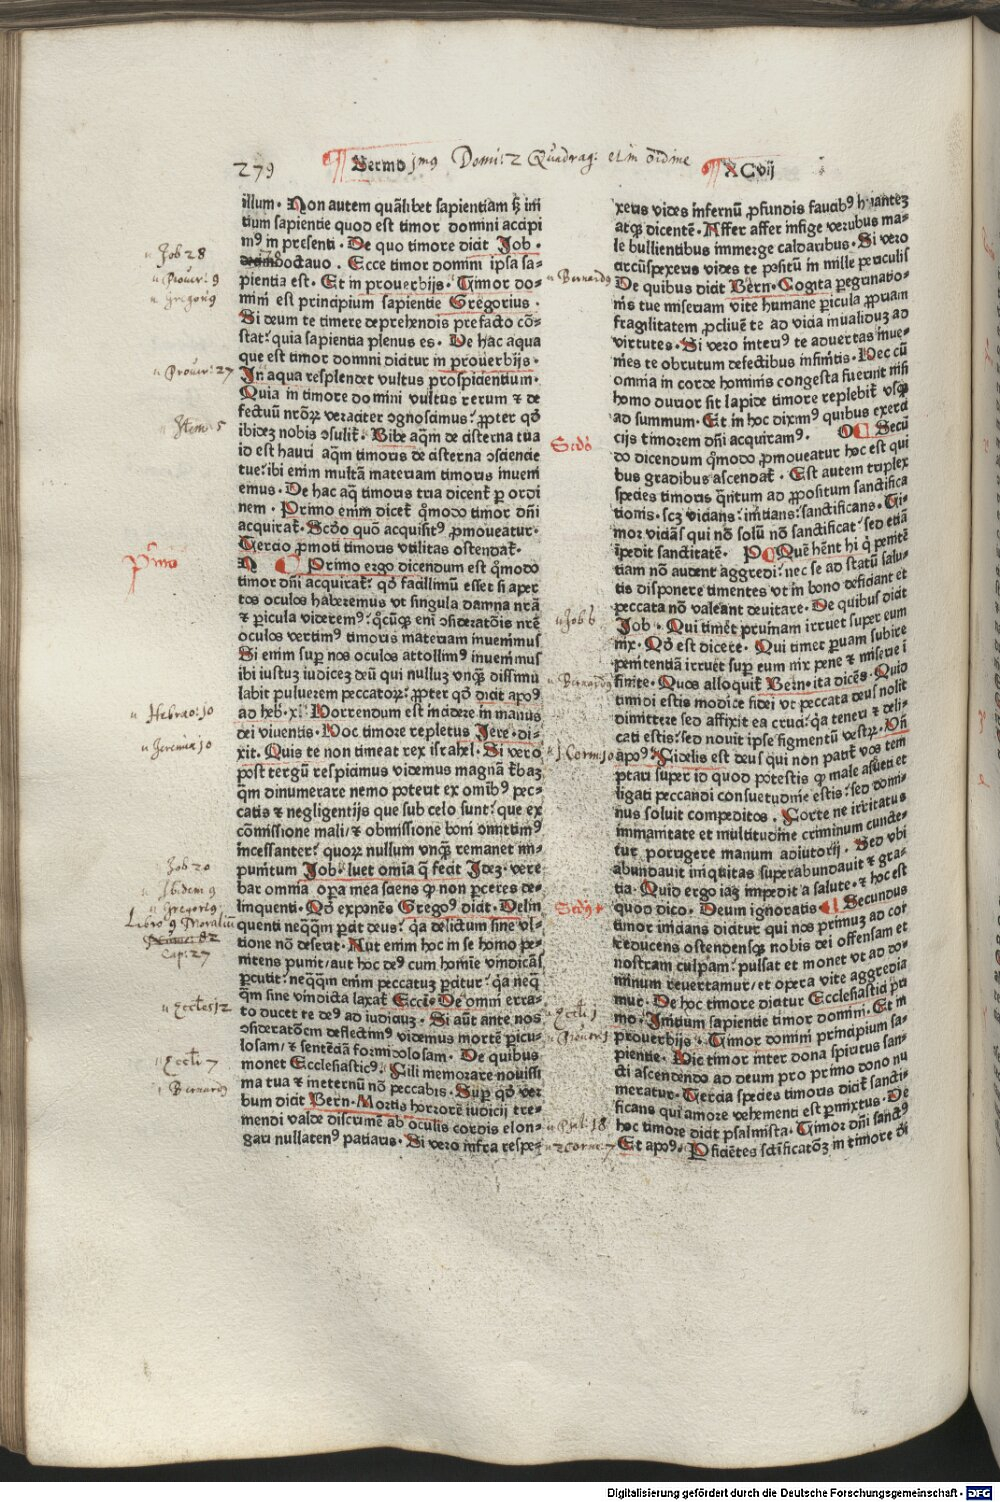 279 Sermo jmꝰ Domi: 2 Quadrag: et in ordine XCvij
illum. Non autem quālibet sapientiam sꝫ ini
tium sapientie quod est timor domini accipi
mꝰ in presenti. De quo timore dicit Job.
octauo. Ecce timor domini ipsa sa-
pientia est. Et in prouerbijs. Timor do-
mini est principium sapientie Gregorius.
Si deum te timere deprehendis pre facto cō-
stat: quia sapientia plenus es. De hac aqua
que est timor domini dicitur in prouerbijs.
In aqua resplendet vultus prospicientium.
Quia in timore domini vultus rerum ⁊ de
fectuū nroꝝ veraciter ꝯgnoscimus: ꝓpter qđ
ibidez nobis ꝯsulit̄. Bibe aqm̄ de cisterna tua
id est hauri aqm̄ timoris de cisterna ꝯsciencie
tue: ibi enim multā materiam timoris inueni
emus. De hac aq̄ timoris tria dicent̄ ꝑ ordi
nem. Primo enim dicet̄ qm̄odo timor dn̄i
acquirat̄. Scd̄o quō acquisitꝰ ꝓmoueatur.
Tercio ꝓmoti timoris vtilitas ostendat̄.
Primo ergo dicendum est qm̄odo
timor dn̄i acquirat̄: qđ facillimū esset si aper
tos oculos haberemus vt singula damna nrā
⁊ ꝑicula videremꝰ: q̄cūqꝫ eni ꝯsideratōis nrē
oculos vertimꝰ timoris materiam inuenimus
Si enim supͣ nos oculos attollimꝰ inuenimus
ibi iustuz iudicez deū qui nullūz vnqꝫ dissimu
labit puluerem peccatoꝝ: ꝓpter qđ dicit apoꝰ
ad heb. x. Horrendum est incidere in manus
dei viuentis. Hoc timore repletus Jere. di-
xit. Quis te non timeat rex israhel. Si vero
post tergū respicimus videmus magnā t̄baz
qm̄ dinumerare nemo poterit ex omībꝰ pec-
catis ⁊ negligentijs que sub celo sunt: que ex
cōmissione mali/ ⁊ obmissione boni omittimꝰ
incessanter: quoꝝ nullum vnqꝫ remanet im-
punitum Job. luet omia q̄ fecit Idez. vere
bar omnia oꝑa mea sciens ꝙ non ꝑceres de-
linquenti. Qđ exponēs Gregoꝰ dicit. Delin
quenti neqꝫqm̄ ꝑcit deus: qꝛ delictum sine vl-
tione nō deserit. Aut enim hoc in se homo pe-
nitens punit/ aut hoc deꝰ cum homīe vindicās
ꝑcutit: neqꝫqm̄ enim peccatuz ꝑcitur: qꝛ neqꝫ
qm̄ sine vindicta laxat̄ Ecci. De omni erra-
to ducet te deꝰ ad iudiciuz. Si aūt ante nos
ꝯsideratōem deflectimꝰ videmus mortē ꝑicu-
losam/ ⁊ sentēciā formidolosam. De quibus
monet Ecclesiasticꝰ. Fili memorare nouissi
ma tua ⁊ ineternū nō peccabis. Supͣ qđ ver
bum dicit Bern. Mortis horrorē iudicij tre-
mendi valde discrimē ab oculis cordis elon-
gari nullatenꝰ patiaris. Si vero infra respe-
xeris vides infernū ꝓfundis faucibꝰ hiantez
atqꝫ dicentē. Affer affer infige verubus ma-
le bullientibus immerge caldaribus. Si vero
circūspexeris vides te positū in mille periculis
De quibus dicit Bern. Cogita ꝑegrinatio-
nis tue miseriam vite humane ꝑicula ꝓpriam
fragilitatem ꝓcliuē te ad vicia inualiduz ad
virtutes. Si vero interiꝰ te aduertas inue-
nies te obrutum defectibus infinitis. Hec cū
omnia in corde hominis congesta fuerint nisi
homo durior sit lapide timore replebit̄ vsqꝫ
ad summum. Et in hoc diximꝰ quibus exerci
cijs timorem dn̄i acquiram̄ꝰ. Secū
do dicendum qm̄odo ꝓmoueatur hoc est qui
bus gradibus ascendat̄. Est autem triplex
species timoris q̄ntum ad ꝓpositum sanctifica
tionis. scz vicians: initians: sanctificans. Ti-
mor viciās qui nō solū nō sanctificat: sed etiā
īpedit sanctitatē. Quē hēnt hi q̇ penitē
tiam nō audent aggredi: nec se ad statū salu-
tis disponere timentes vt in bono deficiant et
peccata nō valeant deuitare. De quibus dicit
Job. Qui timēt pruinam irruet super eum
nix. Qđ est dicere. Qui timet ꝑuam subire
penitentiā irruet supͣ eum nix pene ⁊ miserie i
finite. Quos alloquit̄ Bern. ita dicēs. Quid
timidi estis modice fidei vt peccata deus nolit
dimittere sed affixit ea cruci: qꝛ teneri ⁊ deli-
cati estis: sed nouit ipse figmentū vestrꝫ. Dn̄
apoꝰ. Fidelis est deus qui non patit̄ vos tem
ptari super id quod potestis ꝙ male assueti et
ligati peccandi consuetudine estis: sed domi-
nus soluit compeditos. Forte ne irritatus
immanitate et multitudine criminum cuncte-
tur porrigere manum adiutorij. Sed vbi
abundauit iniquitas superabundauit ⁊ gra-
tia. Quid ergo iaz impedit a salute. ⁊ hoc est
quod dico. Deum ignoratis Secundus
timor inicians dicitur qui nos primuz ad cor
reducens ostendensqꝫ nobis dei offensam et
nostram culpam: pulsat et monet vt ad do-
minum reuertamur/ et opera vite aggredia
mur. De hoc timore dicitur Ecclesiastici pri
mo. Initium sapientie timor domini. Et in
prouerbijs. Timor domini principium sa-
pientie. Hic timor inter dona spiritus san-
cti ascendendo ad deum pro primo dono nu
meratur. Tercia species timoris dicit̄ sancti-
ficans qui amore vehementi est ꝑmixtus. De
hoc timore dicit psalmista. Timor dn̄i sanctꝰ
Et apoꝰ. Pficiētes sctificatōz in timore di
Job 28
Prouer: 9
Gregorius
Prouer: 27
Item 5
Primo
Hebrao: 10
Jeremie 10
Job 20
Ibidem 9
Gregorius
Libro 9 Moraliū
Cap: 27
Eccles: 12
Eccli 7
Bernardꝰ
Bernardꝰ
Scdo
Job 6
Bernardꝰ
1 Corin: 10
Scdꝰ
Eccli 1
Prouer 1
Psal: 18
2 Corin: 7
Digitalisierung gefördert durch die Deutsche Forschungsgemeinschaft - DFG